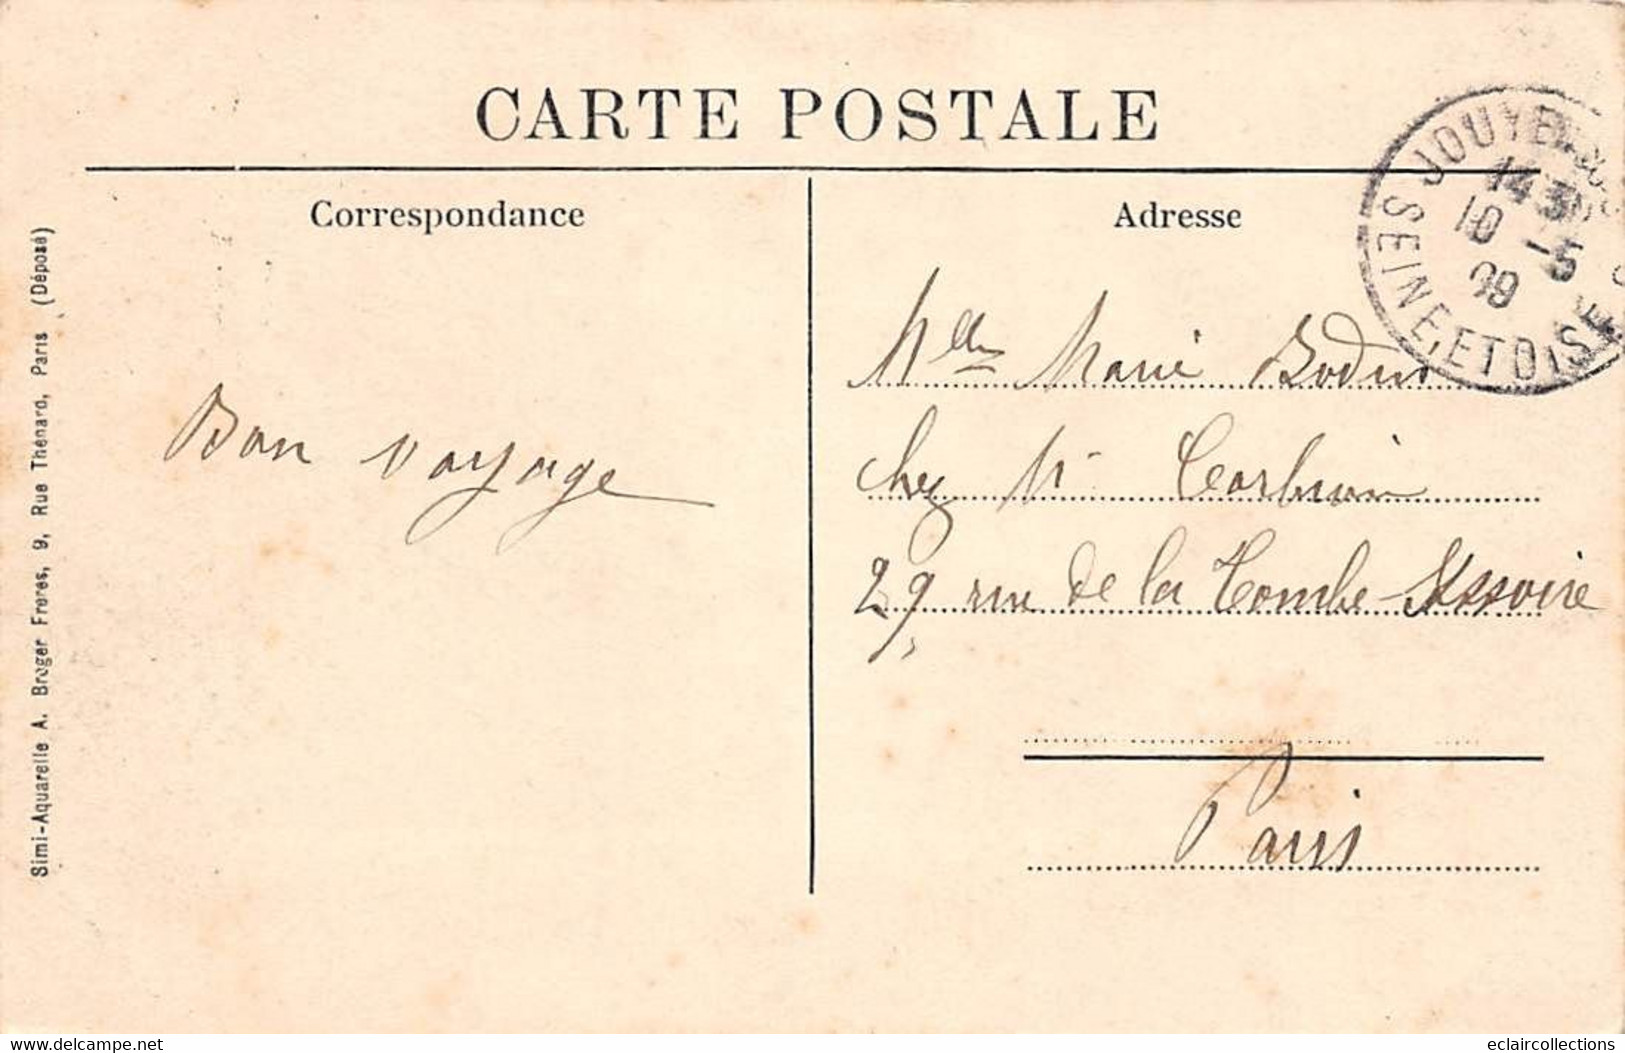 CARTE POSTALE
Correspondance
Adresse
JOUY EN JOSAS
SEINE ET OISE
14 30
10 -5
09
Bon voyage
Melle Marie Bodin
chez Mr
29 rue de la Tombe-Issoire
Paris
Simi-Aquarelle A. Breger Freres, 9, Rue Thénard, Paris (Déposé)
www.delcampe.net
eclaircollections